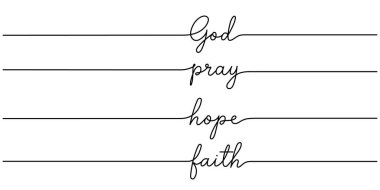 God
pray
hope
faith